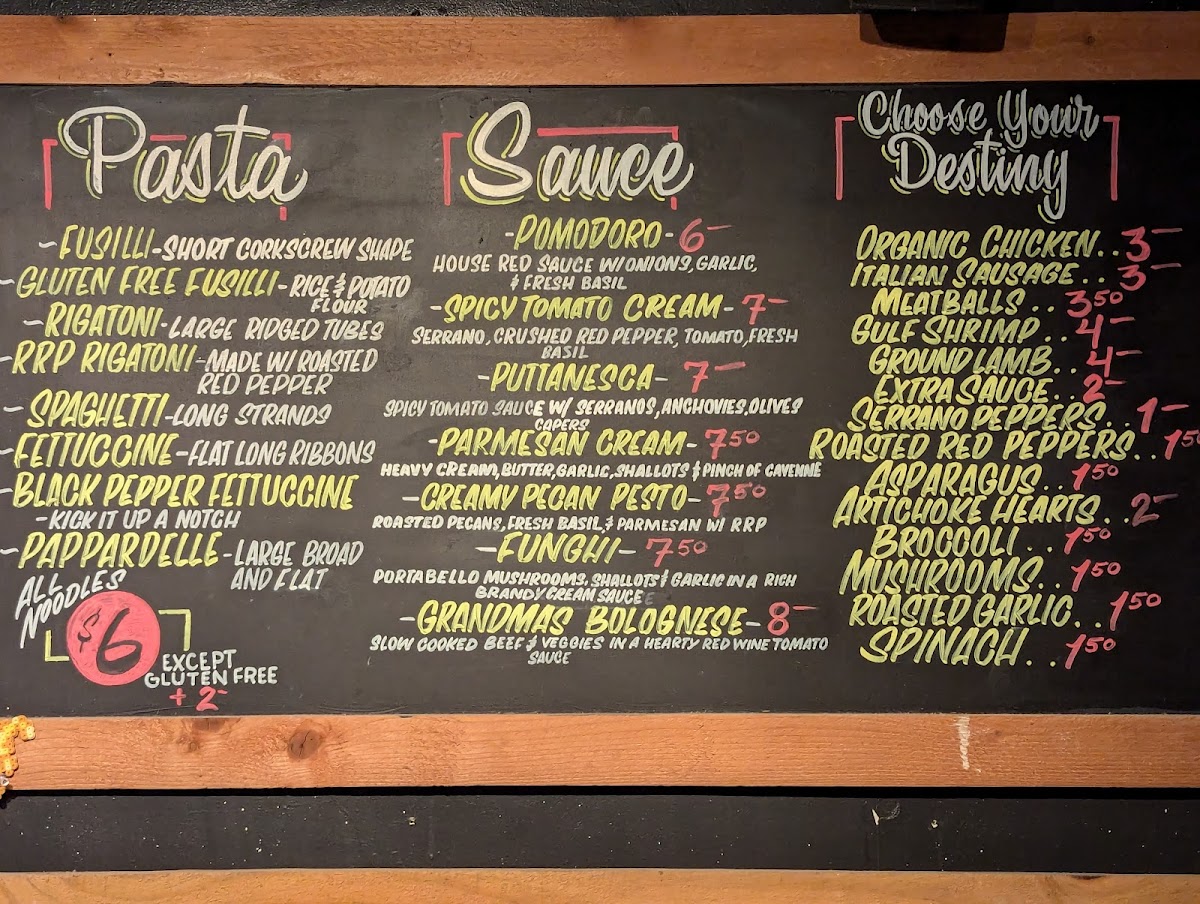 Pasta
~FUSILLI-SHORT CORKSCREW SHAPE
~GLUTEN FREE FUSILLI-RICE & POTATO
FLOUR
~RIGATONI-LARGE RIDGED TUBES
RRP RIGATONI-MADE W/ ROASTED
RED PEPPER
~SPAGHETTI-LONG STRANDS
~FETTUCCINE-FLAT LONG RIBBONS
~BLACK PEPPER FETTUCCINE
-KICK IT UP A NOTCH
~PAPPARDELLE-LARGE BROAD
AND FLAT
ALL
NOODLES
$6
EXCEPT
GLUTEN FREE
+2-
Sauce
-POMODORO-6-
HOUSE RED SAUCE W/ONIONS, GARLIC,
& FRESH BASIL
-SPICY TOMATO CREAM-7-
SERRANO, CRUSHED RED PEPPER, TOMATO, FRESH
BASIL
-PUTTANESCA-7-
SPICY TOMATO SAUCE W/ SERRANOS, ANCHOVIES, OLIVES
CAPERS
-PARMESAN CREAM-7 50
HEAVY CREAM, BUTTER, GARLIC, SHALLOTS & PINCH OF CAYENNE
-CREAMY PECAN PESTO-7 50
ROASTED PECANS, FRESH BASIL, & PARMESAN W/ RRP
-FUNGHI-7 50
PORTABELLO MUSHROOMS, SHALLOTS & GARLIC IN A RICH
BRANDY CREAM SAUCE
-GRANDMAS BOLOGNESE-8-
SLOW COOKED BEEF & VEGGIES IN A HEARTY RED WINE TOMATO
SAUCE
Choose Your
Destiny
ORGANIC CHICKEN..3-
ITALIAN SAUSAGE...3-
MEATBALLS..3 50
GULF SHRIMP..4-
GROUND LAMB..4-
EXTRA SAUCE..2-
SERRANO PEPPERS..1-
ROASTED RED PEPPERS..1 50
ASPARAGUS..1 50
ARTICHOKE HEARTS..2-
BROCCOLI..1 50
MUSHROOMS..1 50
ROASTED GARLIC..1 50
SPINACH..1 50